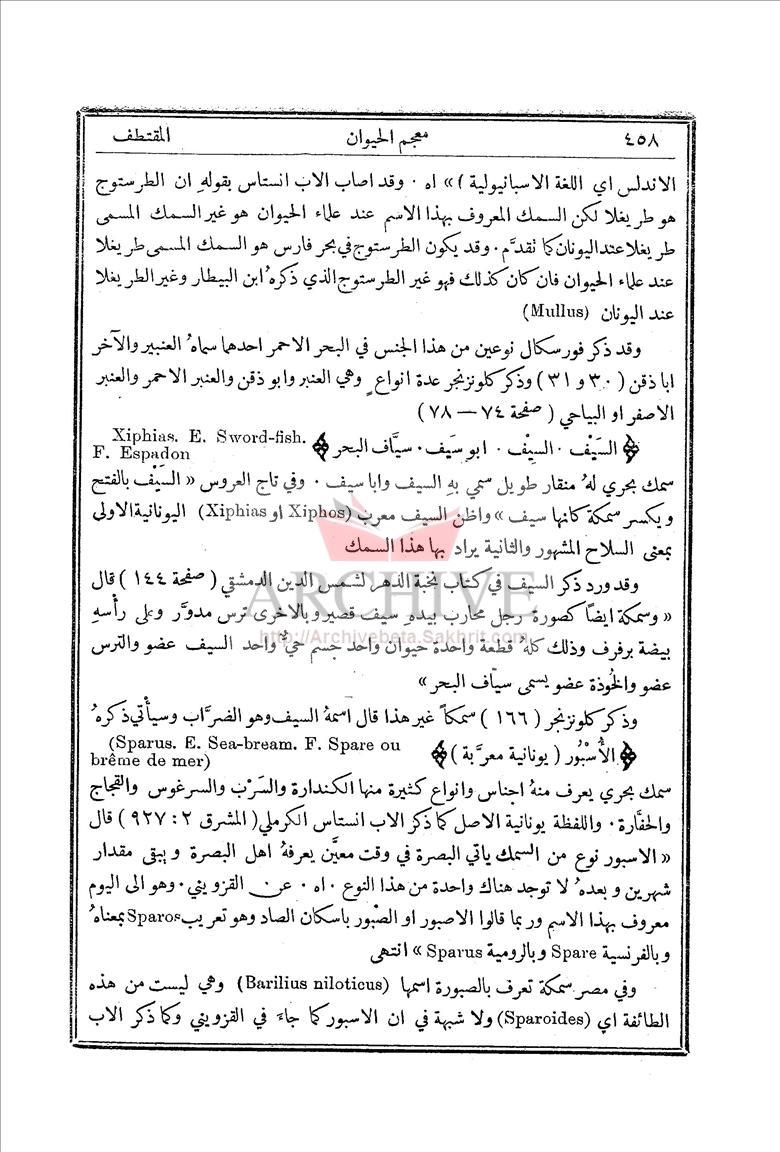 ٤٥٨ معجم الحيوان المقتطف
الاندلس اي اللغة الاسبانيولية )» اه ٠ وقد اصاب الاب انستاس بقولهِ ان الطرستوج
هو طريغلا لكن السمك المعروف بهذا الاسم عند علماء الحيوان هو غير السمك المسمى
طريغلا عند اليونان كما تقدَّم ٠ وقد يكون الطرستوج في بحر فارس هو السمك المسمى طريغلا
عند علماء الحيوان فان كان كذلك فهو غير الطرستوج الذي ذكرهُ ابن البيطار وغير الطريغلا
عند اليونان (Mullus)
وقد ذكر فورسكال نوعين من هذا الجنس في البحر الاحمر احدهما سماهُ العنبير والآخر
ابا ذقن ( ٣٠ و ٣١ ) وذكر كلونزنجر عدة انواعٍ وهي العنبر وابو ذقن والعنبر الاحمر والعنبر
الاصفر او البياحي ( صفحة ٧٤ — ٧٨ )
﴿ السَيْف ٠ السِيْف ٠ ابو سَيف ٠ سيَّاف البحر ﴾ Xiphias. E. Sword-fish.
F. Espadon
سمك بحري لهُ منقار طويل سمي بهِ السيف وابا سيف ٠ وفي تاج العروس « السَيْف بالفتح
ويكسر سمكة كانها سيف » واظن السيف معرب (Xiphos او Xiphias) اليونانية الاولى
بمعنى السلاح المشهور والثانية يراد بها هذا السمك
وقد ورد ذكر السيف في كتاب نخبة الدهر لشمس الدين الدمشقي ( صفحة ١٤٤ ) قال
« وسمكة ايضاً كصورة رجل محارب بيده سيف قصير وبالاخرى ترس مدوَّر وعلى رأسهِ
بيضة برفرف وذلك كلهُ قطعة واحدة حيوان واحد جسم حيّ واحد السيف عضو والترس
عضو والخُوذة عضو يسمى سيَّاف البحر »
وذكر كلونزنجر ( ١٦٦ ) سمكاً غير هذا قال اسمهُ السيف وهو الضرَّاب وسيأتي ذكرهُ
﴿ الأُسْبُور ( يونانية معرَّبة ) ﴾ (Sparus. E. Sea-bream. F. Spare ou
brême de mer)
سمك بحري يعرف منهُ اجناس وانواع كثيرة منها الكندارة والسَرْب والسرغوس والقجاج
والحفَّارة ٠ واللفظة يونانية الاصل كما ذكر الاب انستاس الكرملي ( المشرق ٢ : ٩٢٧ ) قال
« الاسبور نوع من السمك ياتي البصرة في وقت معيَّن يعرفهُ اهل البصرة ويبقى مقدار
شهرين وبعدهُ لا توجد هناك واحدة من هذا النوع ٠ اه ٠ عن القزويني ٠ وهو الى اليوم
معروف بهذا الاسم وربما قالوا الاصبور او الصْبور باسكان الصاد وهو تعريب Sparos بمعناهُ
وبالفرنسية Spare وبالرومية Sparus » انتهى
وفي مصر سمكة تعرف بالصبورة اسمها (Barilius niloticus) وهي ليست من هذه
الطائفة اي (Sparoides) ولا شبهة في ان الاسبور كما جاءَ في القزويني وكما ذكر الاب
ARCHIVE
http://Archivebeta.Sakhrit.com